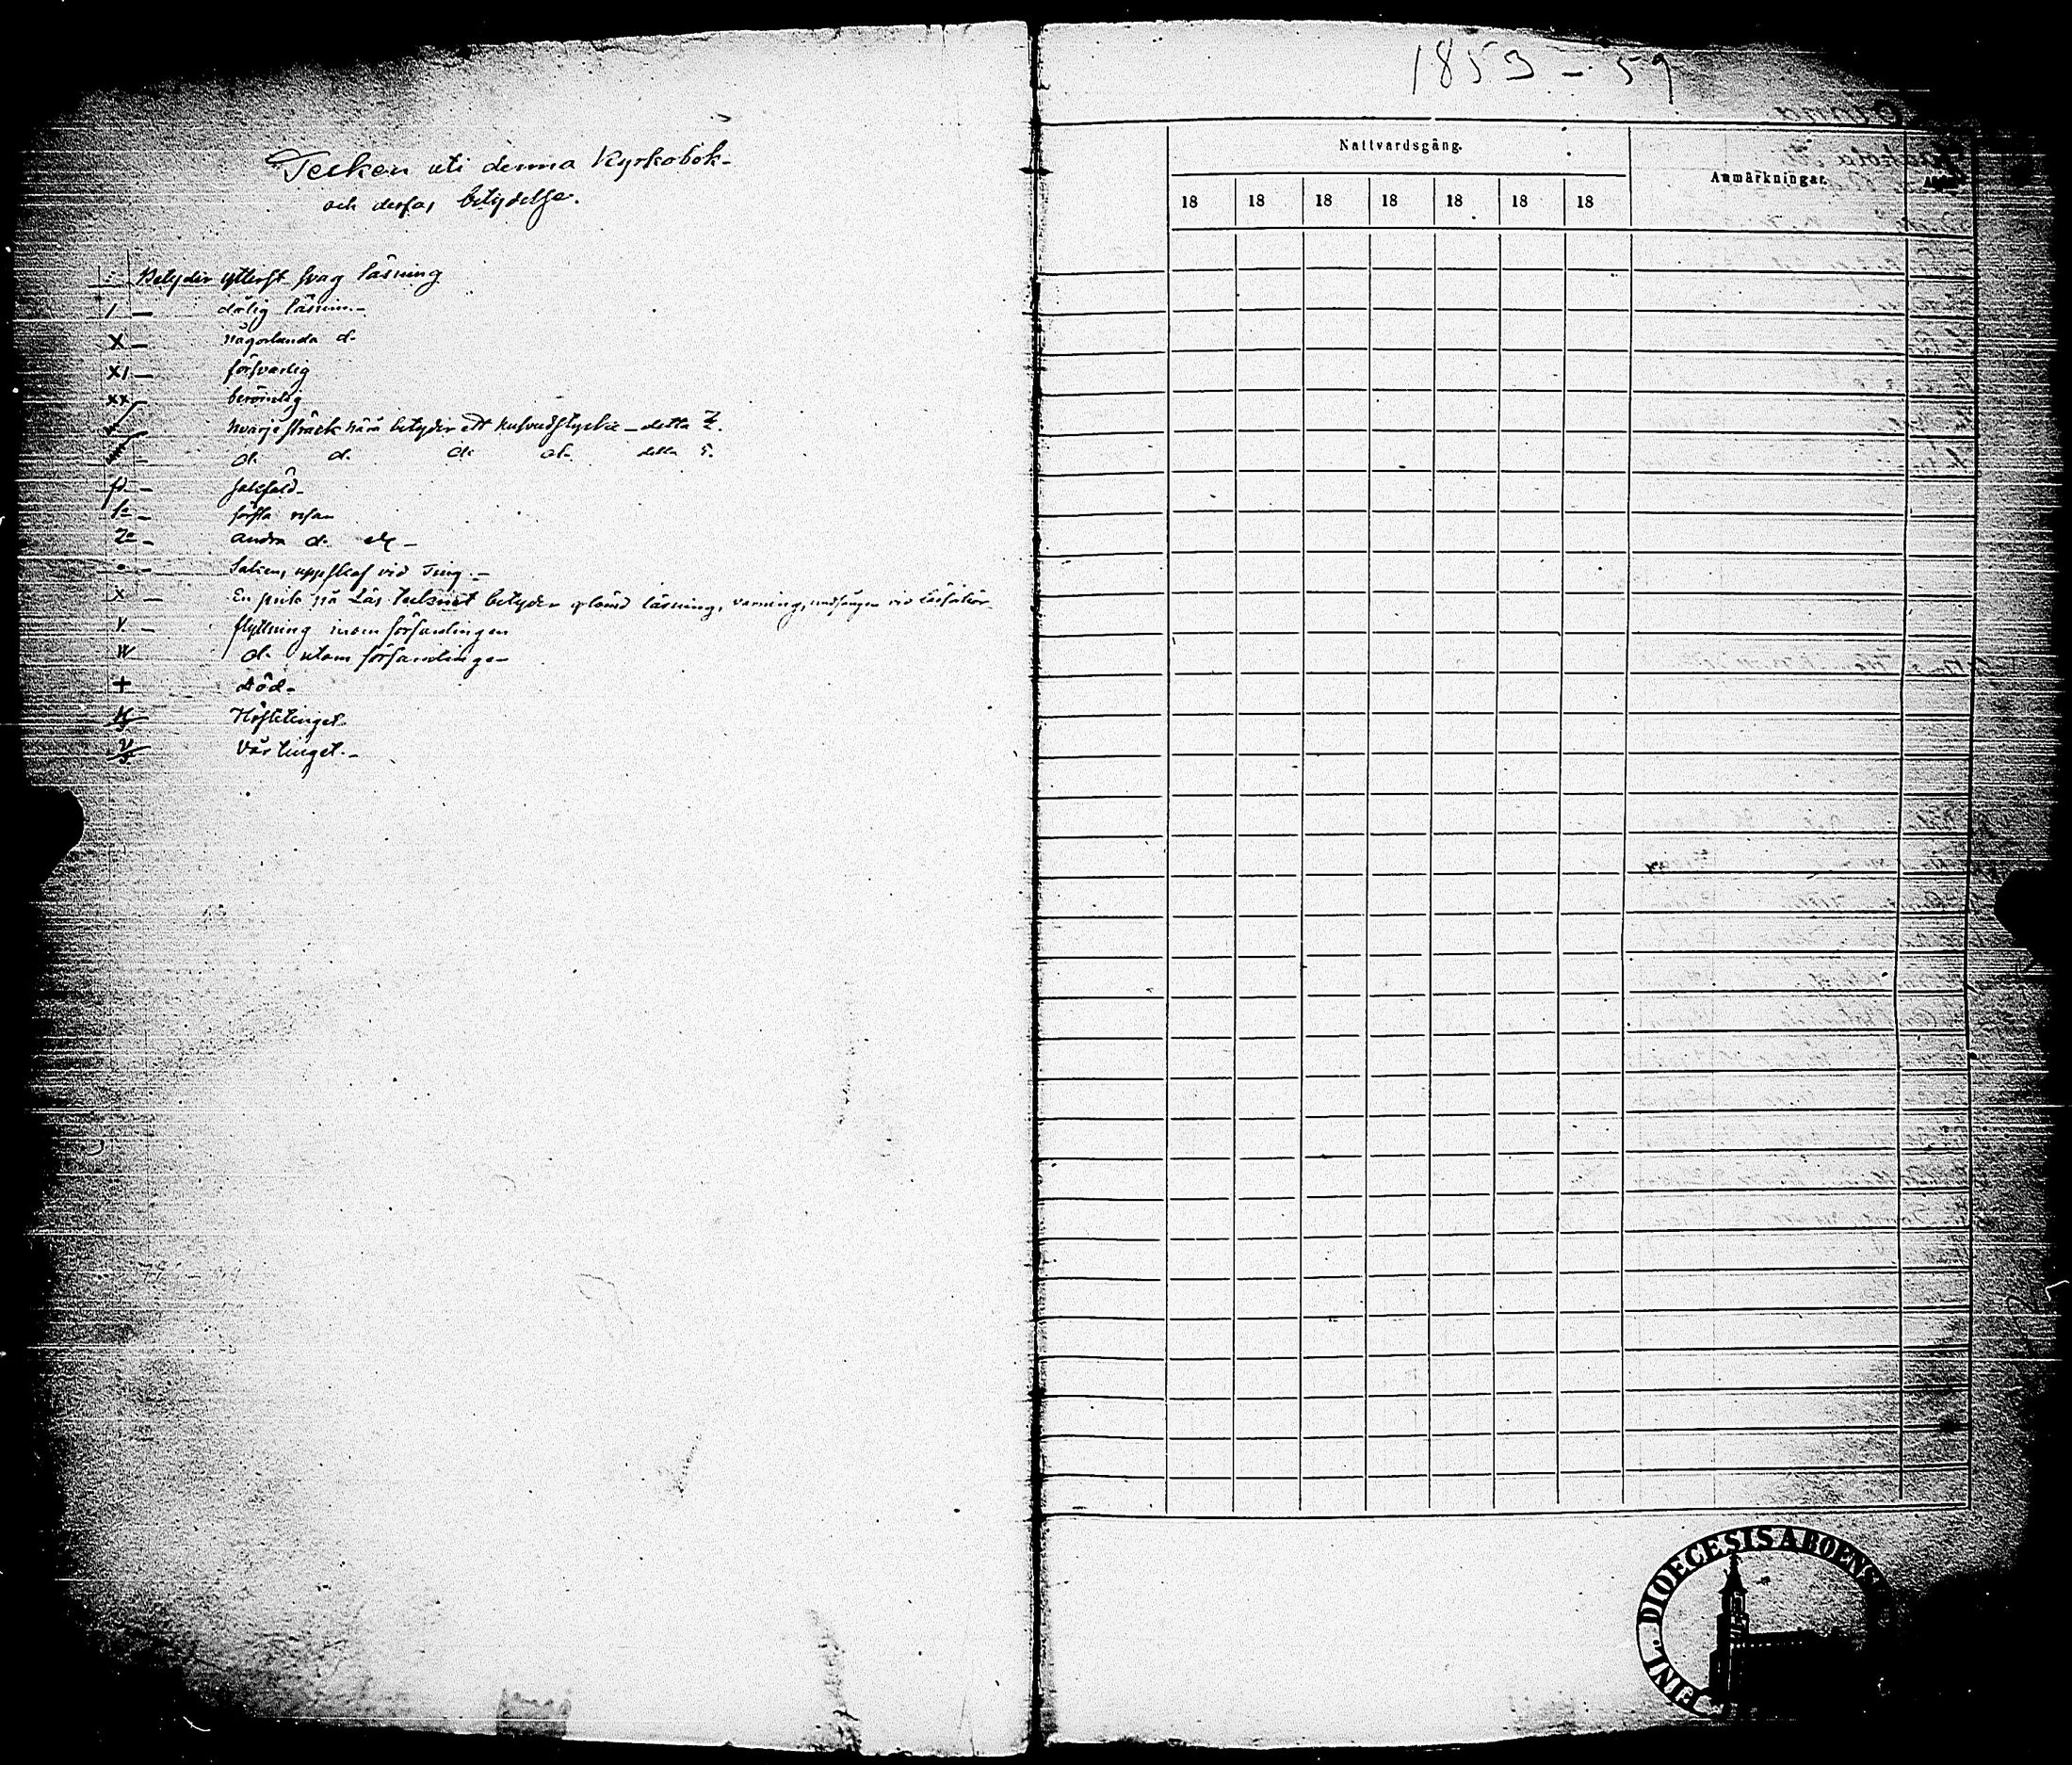 Tecken uti denna Kyrkobok
och derfas betydelse.
: Betyder ytterst svag läsning
/ — dålig läsnin.–
X — någorlunda d–
X/ — försvarlig
XX — berömlig
hvarje sträck här å betyder ett hufvudstycke – detta 2.
d: d. d: d: detta 5.
p —
1a — första resan
2a — andra d: etc –
• — Saken, uppskof vid Ting. –
X — En prik på Läs tecknet betyder glömd läsning, varning, undfången vid
V. — flyttning inom församlingen
W d: utom församlingen
+ Död –
H/T Höstetinget
V/T Vår tinget. –
1853 – 59
Nattvardsgång.
Anmärkningar.
18 18 18 18 18 18 18
FINL. DIOECESIS ABOENS